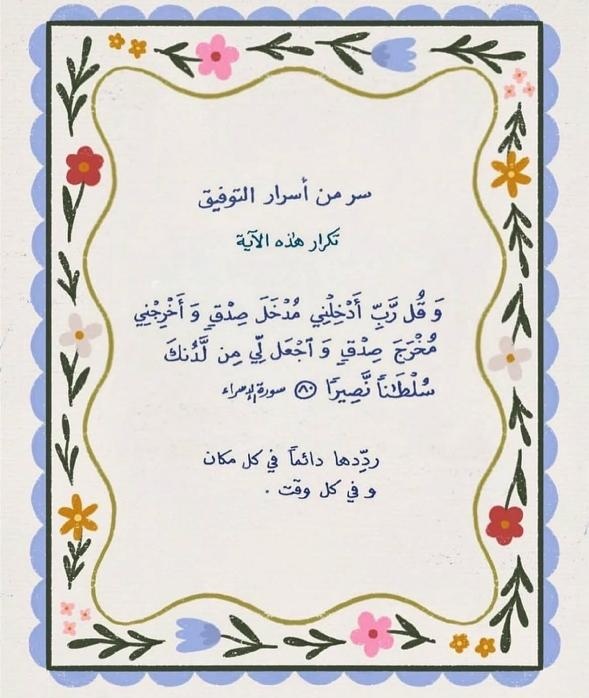 سر من أسرار التوفيق
تكرار هذه الآية
وَ قُل رَّبِّ أَدْخِلْنِي مُدْخَلَ صِدْقٍ وَ أَخْرِجْنِي
مُخْرَجَ صِدْقٍ وَ ٱجْعَل لِّي مِن لَّدُنكَ
سُلْطَـٰناً نَّصِيرًا ٨٠ سورة الإسراء
ردِّدها دائماً في كل مكان
و في كل وقت .